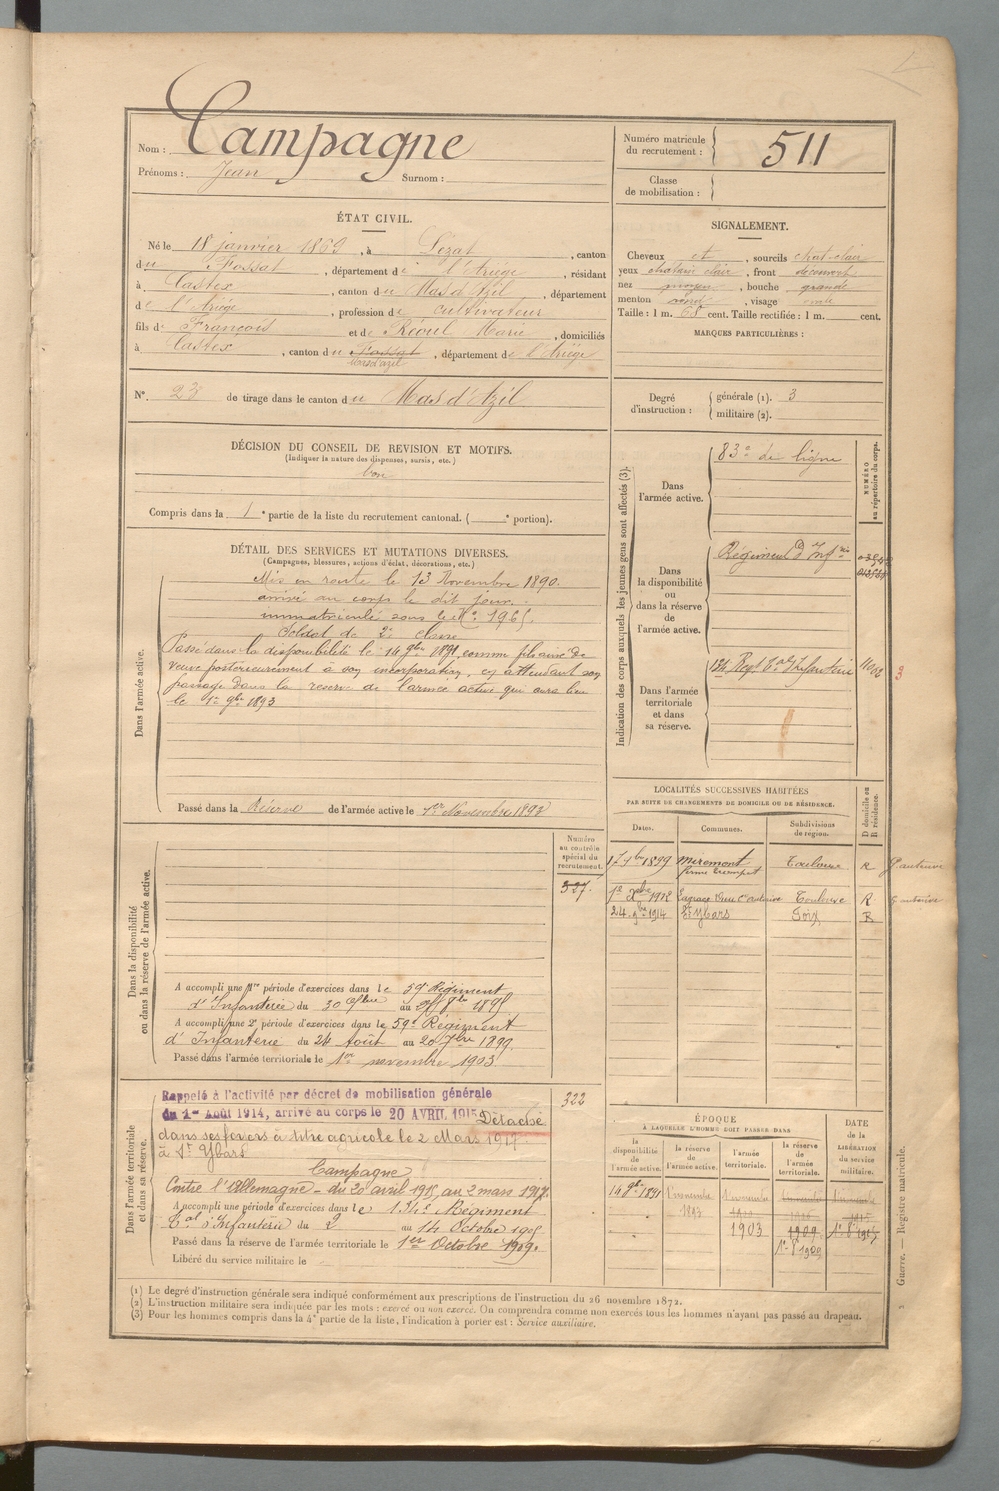 Nom : Campagne
Prénoms : Jean Surnom :
Numéro matricule du recrutement : 511
Classe de mobilisation :
ÉTAT CIVIL.
Né le 18 janvier 1869, à Lézat, canton
du Fossat, département de l'Ariège, résidant
à Castex, canton du Mas d'Azil, département
de l'Ariège, profession de cultivateur
fils de François et de Réoul Marie, domiciliés
à Castex, canton du Fossat, département de l'Ariège
Mas d'azil
N°. 23 de tirage dans le canton du Mas d'Azil
SIGNALEMENT.
Cheveux et, sourcils chat-clair
yeux chatain clair, front découvert
nez moyen, bouche grande
menton rond, visage ovale
Taille : 1 m. 68 cent. Taille rectifiée : 1 m. cent.
MARQUES PARTICULIÈRES :
Degré d'instruction : générale (1). 3
militaire (2).
DÉCISION DU CONSEIL DE REVISION ET MOTIFS.
(Indiquer la nature des dispenses, sursis, etc.)
bon
Compris dans la 1e partie de la liste du recrutement cantonal. ( e portion).
DÉTAIL DES SERVICES ET MUTATIONS DIVERSES.
(Campagnes, blessures, actions d'éclat, décorations, etc.)
Dans l'armée active.
Mis en route le 13 Novembre 1890.
arrivé au corps le dit jour.
immatriculé sous le No 1965.
Soldat de 2e classe
Passé dans la disponibilité le 14 9bre 1891, comme fils ainé de
veuve postérieurement à son incorporation, en attendant son
passage dans la réserve de l'armée active qui aura lieu
le 1er 9bre 1893
Passé dans la Réserve de l'armée active le 1er Novembre 1893
Indication des corps auxquels les jeunes gens sont affectés (3).
NUMÉRO au répertoire du corps.
Dans l'armée active.
83e de ligne
Dans la disponibilité ou dans la réserve de l'armée active.
Régiment d'Infrie
Dans l'armée territoriale et dans sa réserve.
134 Regt Tal Infanterie
3
LOCALITÉS SUCCESSIVES HABITÉES
PAR SUITE DE CHANGEMENTS DE DOMICILE OU DE RÉSIDENCE.
D domicile ou R résidence.
Dates. Communes. Subdivisions de région.
17 9bre 1899 Miremont Toulouse R
1er Xbre 1912 Toulouse R
24 9bre 1914 St Ybars Foix R
Numéro au contrôle spécial du recrutement.
327.
Dans la disponibilité ou dans la réserve de l'armée active.
A accompli une 1re période d'exercices dans le 59e Régiment
d'Infanterie du 30 7bre au 27 8bre 1895
A accompli une 2e période d'exercices dans le 59e Régiment
d'Infanterie du 24 Août au 20 7bre 1899.
Passé dans l'armée territoriale le 1er novembre 1903
322
Dans l'armée territoriale et dans sa réserve.
Rappelé à l'activité par décret de mobilisation générale
du 1er Août 1914, arrivé au corps le 20 AVRIL 1915 Détaché
dans ses foyers à titre agricole le 2 Mars 1917.
à St Ybars
Campagne
Contre l'Allemagne - du 20 avril 1915 au 2 mars 1917.
A accompli une période d'exercices dans le 134e Régiment
Tal d'Infanterie du 2 au 14 Octobre 1905
Passé dans la réserve de l'armée territoriale le 1er Octobre 1909.
Libéré du service militaire le
ÉPOQUE
A LAQUELLE L'HOMME DOIT PASSER DANS
la disponibilité de l'armée active. la réserve de l'armée active. l'armée territoriale. la réserve de l'armée territoriale.
DATE de la LIBÉRATION du service militaire.
14 9bre 1891 1er novembre 1893 1er novembre
1903 1909 1er 8bre 1915
1er 8bre 1909
Guerre. — Registre matricule.
(1) Le degré d'instruction générale sera indiqué conformément aux prescriptions de l'instruction du 26 novembre 1872.
(2) L'instruction militaire sera indiquée par les mots : exercé ou non exercé. On comprendra comme non exercés tous les hommes n'ayant pas passé au drapeau.
(3) Pour les hommes compris dans la 4e partie de la liste, l'indication à porter est : Service auxiliaire.